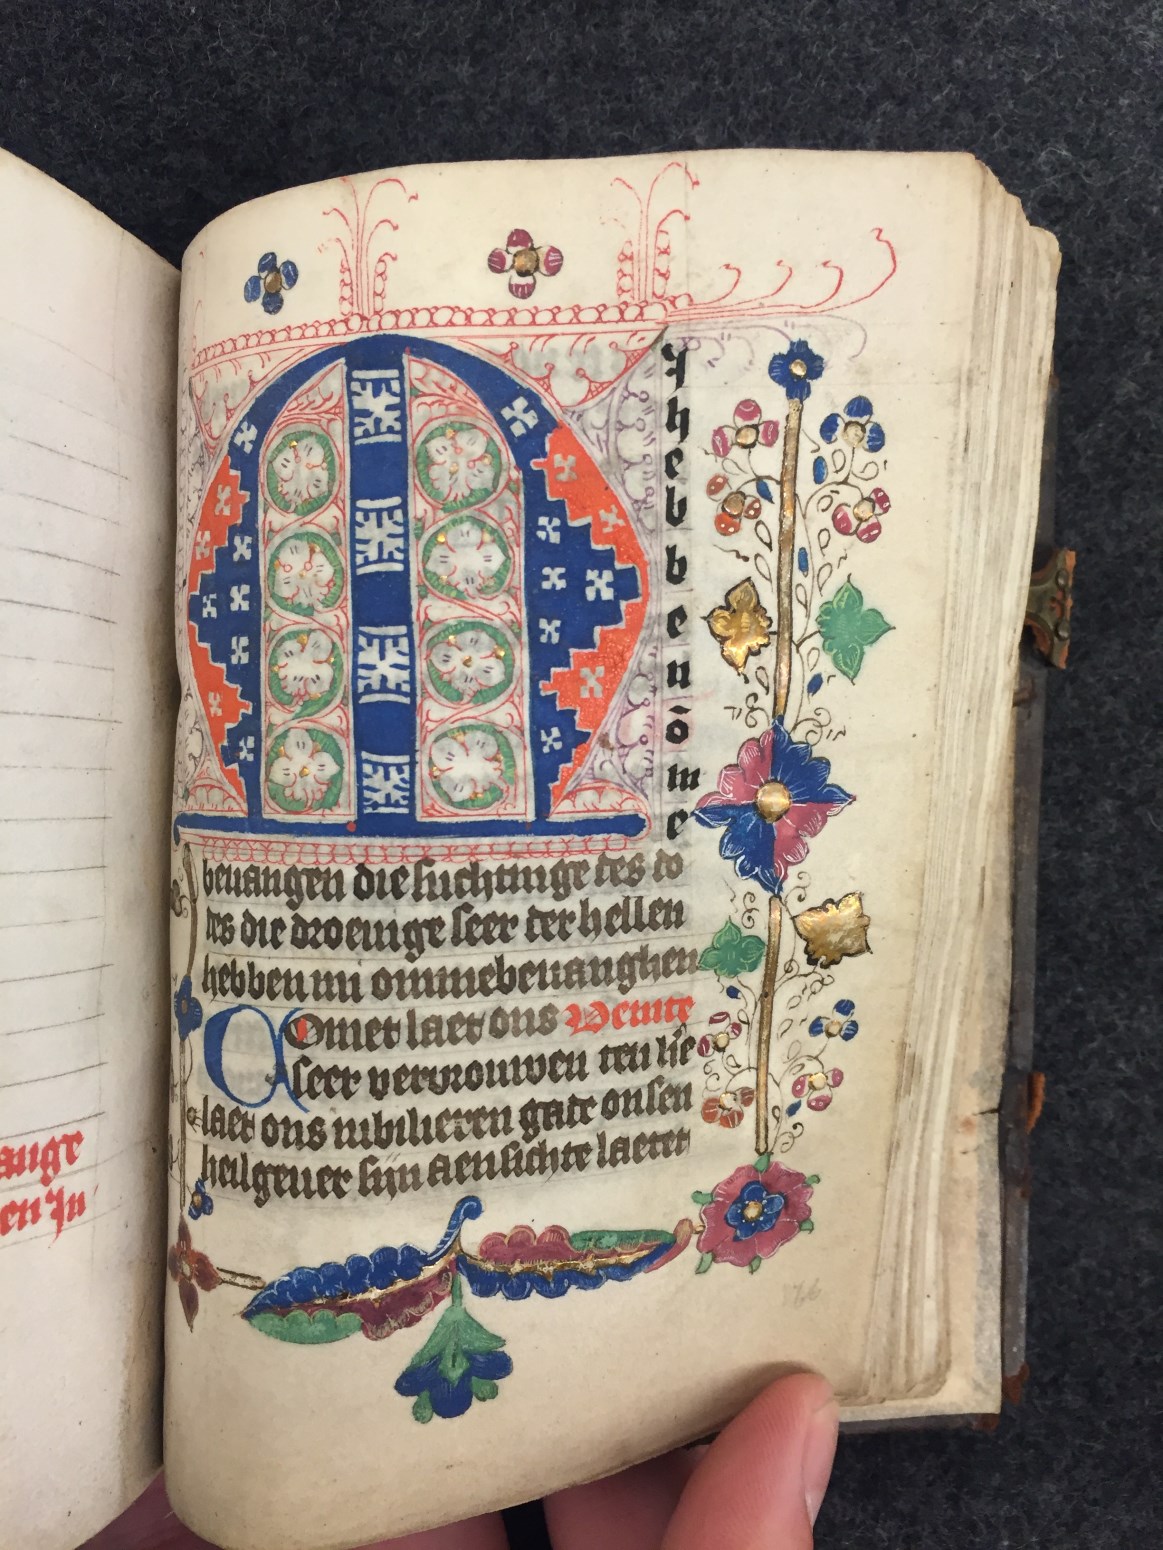 ange
en In
My hebben ōme
beuangen die suchtinge des do
des die droeuige seer der hellen
hebben mi ommebeuanghen
Comet laet ons Venite
seer vervrouwen den h'e
laet ons iubilieren gade onsen
heilgeuer sijn aensichte laetet
76